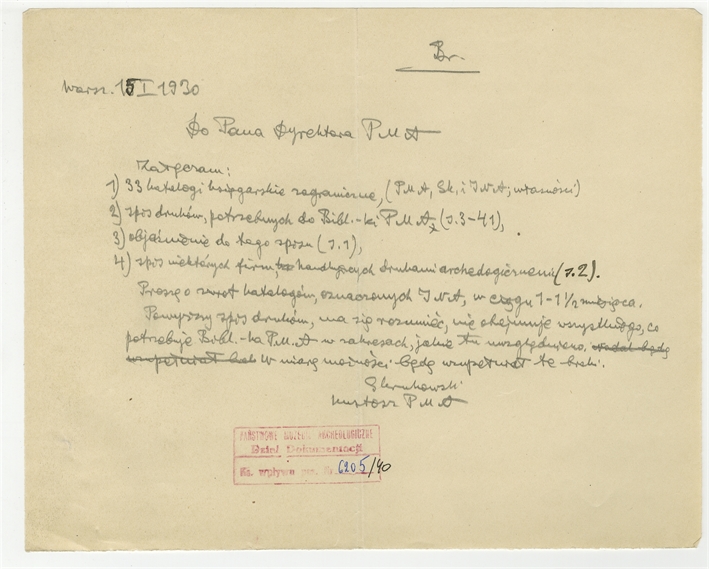 Br.
Warsz. 15 I 1930
Do Pana Dyrektora P M A
Załączam:
1) 33 katalogi księgarskie zagraniczne, (P M A, Sk. i I N A, własności)
2) spis druków, potrzebnych do Bibl.-ki P M A, (s. 3-41),
3) objaśnienie do tego spisu (s. 1),
4) spis niektórych firm, handlujących drukami archeologicznemi (s. 2).
Proszę o zwrot katalogów, oznaczonych I N A, w ciągu 1-1 1/2 miesiąca.
Powyższy spis druków, ma się rozumieć, nie obejmuje wszystkiego, co
potrzebuje Bibl.-ka P.M.A w zakresach, jakie tu uwzględniono. nadal będę
uzupełniał lub W miarę możności będę uzupełniał te braki.
kustosz P M A
PAŃSTWOWE MUZEUM ARCHEOLOGICZNE
Dział Dokumentacji
Ks. wpływu 6205/40